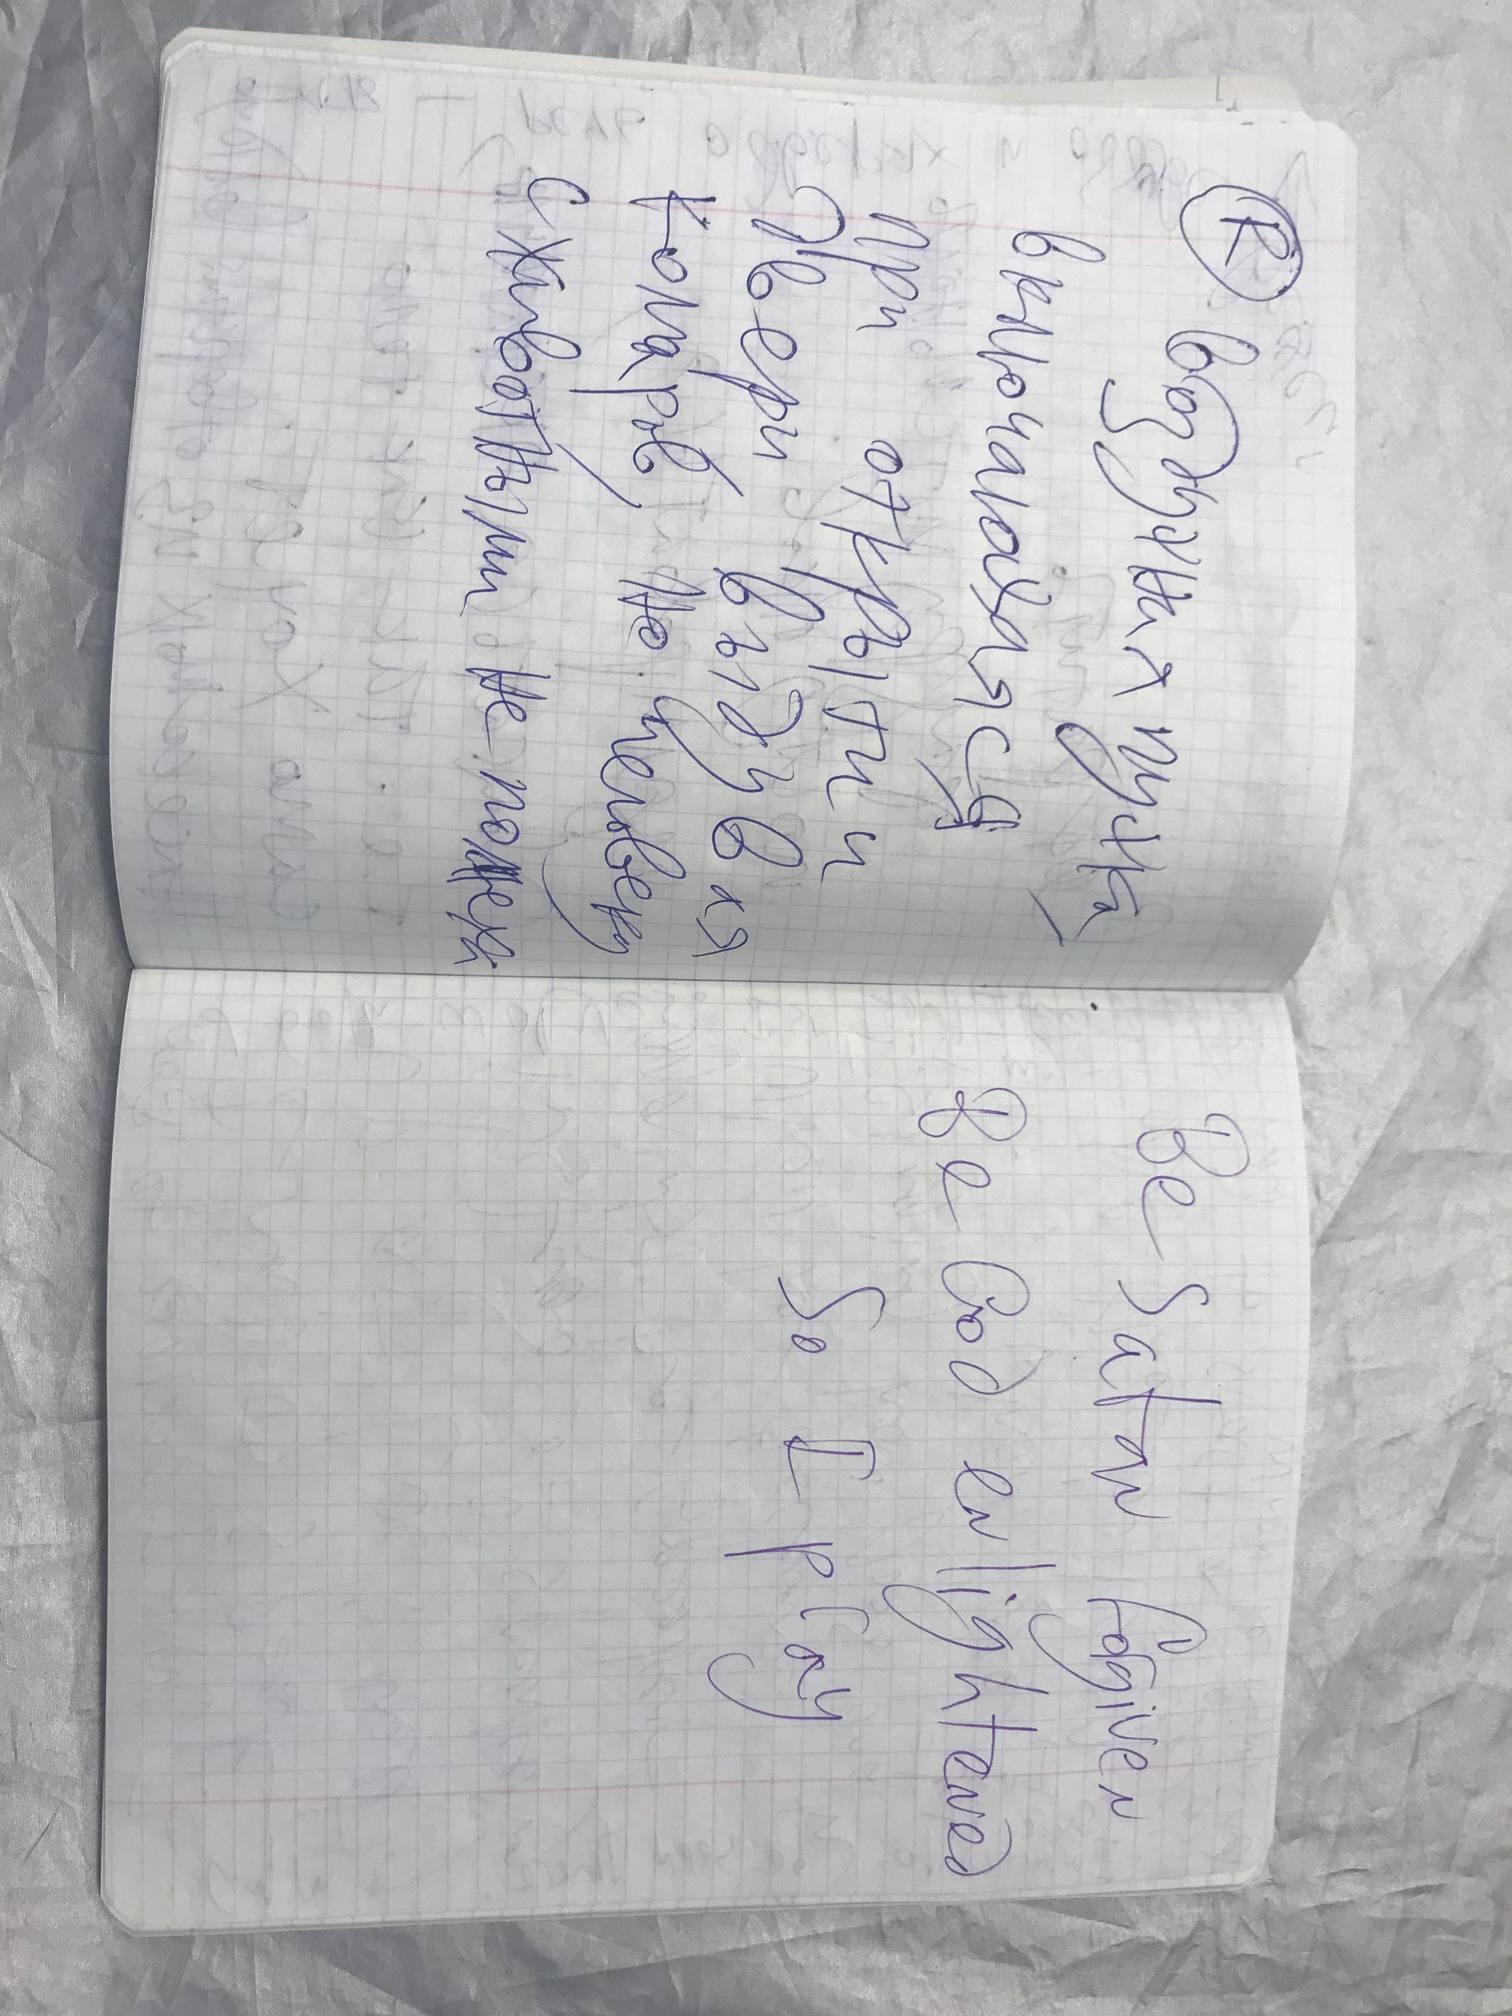 Ⓡ Воздушная пушка
включающаяся
при открытии
двери выдувая
комаров но человеку
с животными не помеха
Be Satan forgiven
Be God enlightened
So I play